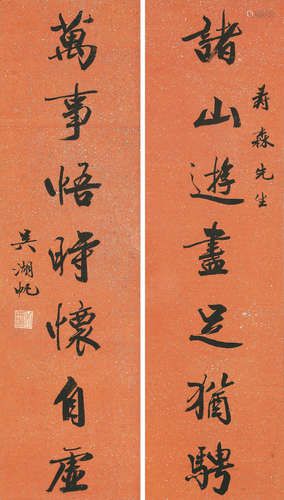 壽森先生
諸山遊盡足猶騁
萬事悟時懷自虛
吳湖帆